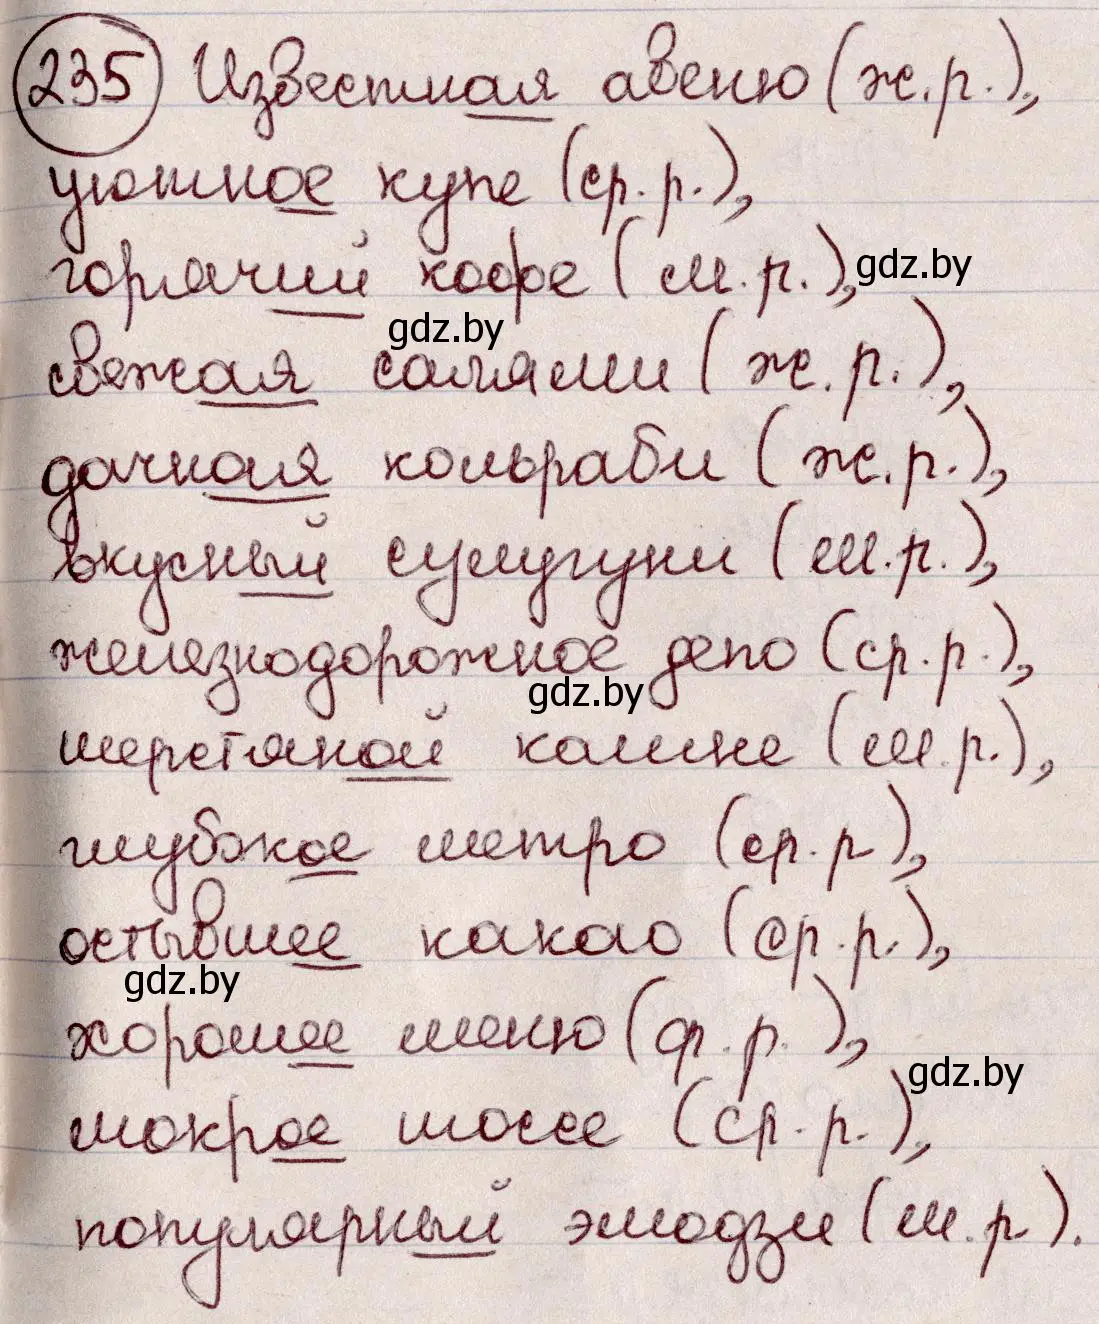 235 Известная авеню (ж.р.),
уютное купе (ср.р.),
горячий кофе (м.р.), gdz.by
gdz.by
свежая салями (ж.р.),
дачная кольраби (ж.р.),
вкусный сулугуни (м.р.),
железнодорожное депо (ср.р.),
gdz.by
шерстяной кашне (м.р.),
глубокое метро (ср.р),
остывшее какао (ср.р.),
gdz.by
хорошее меню (ср.р.),
gdz.by
мокрое шоссе (ср.р.),
популярный эмодзи (м.р).